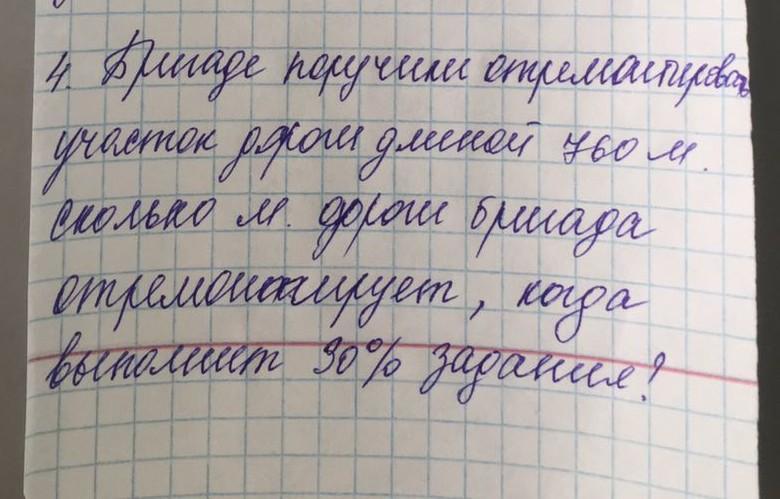 4. Бригаде поручили отремонтировать
участок дороги длиной 760 м.
сколько м. дороги бригада
отремонтирует, когда
выполнит 30% задания?